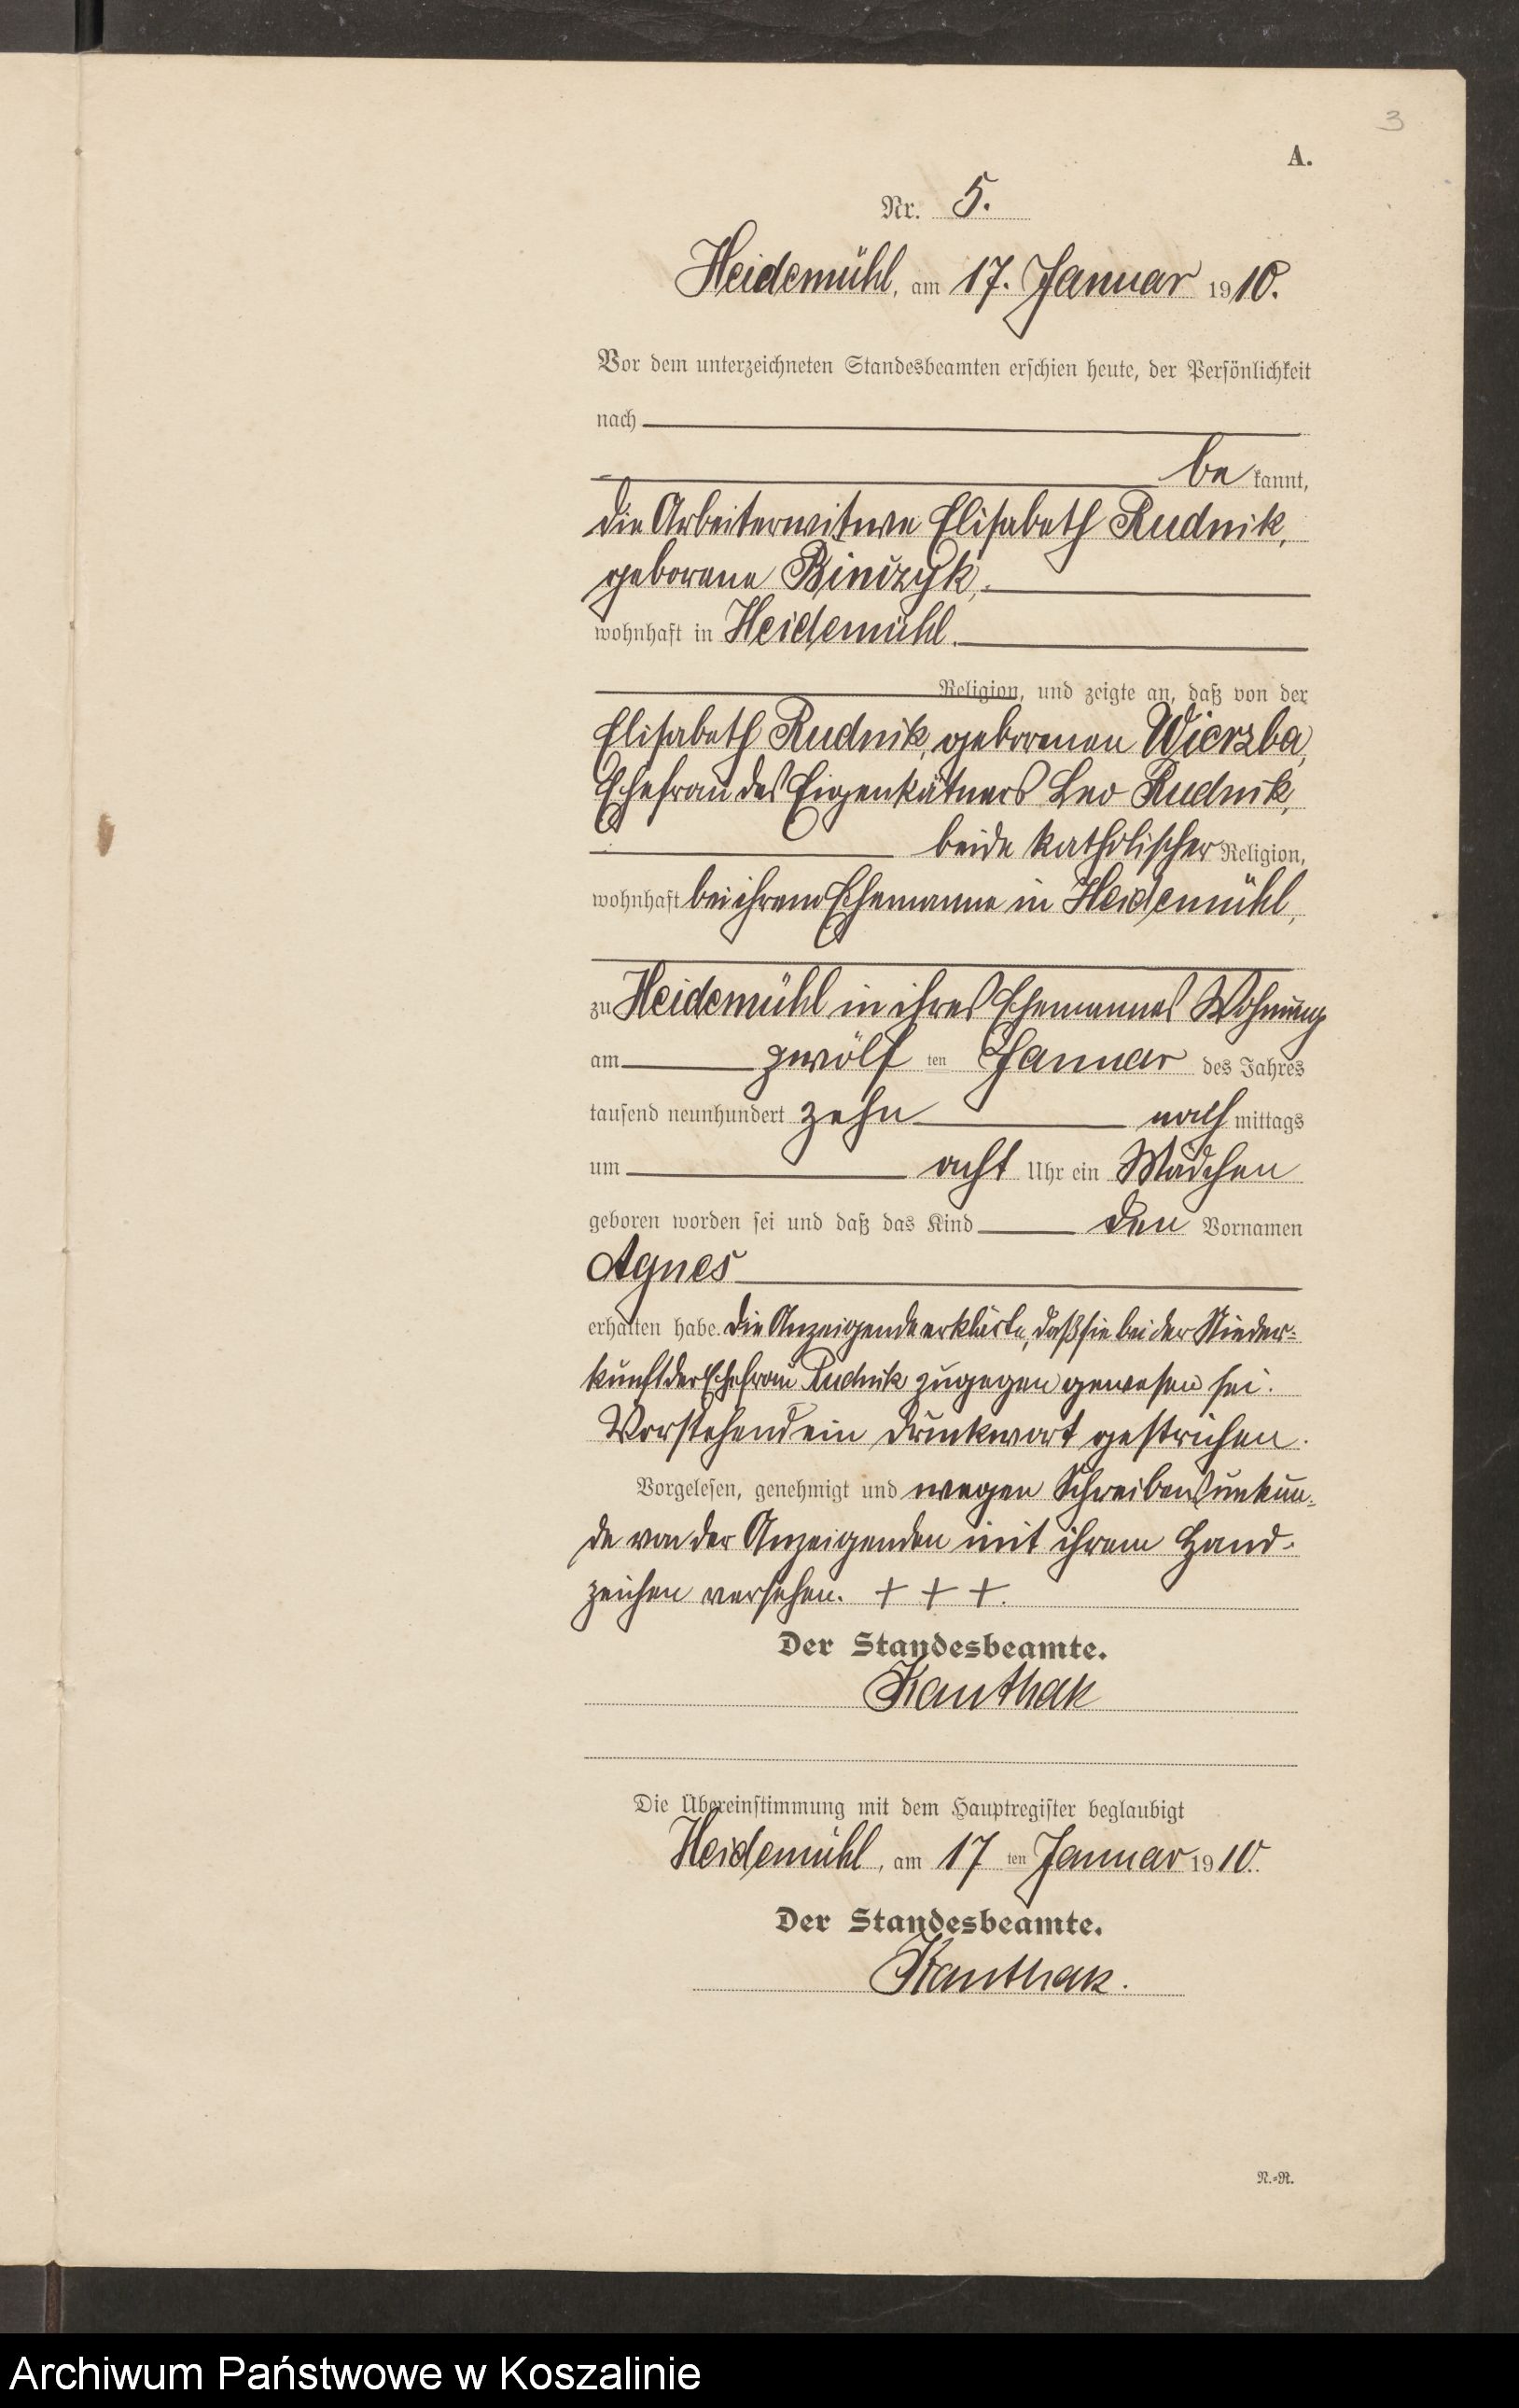 3
A.
Nr. 5.
Heidemühl, am 17. Januar 1910.
Vor dem unterzeichneten Standesbeamten erschien heute, der Persönlichkeit
nach
be kannt,
die Arbeiterwitwe Elisabeth Rudnik,
geborene Binczyk,
wohnhaft in Heidemühl.
Religion, und zeigte an, daß von der
Elisabeth Rudnik, geborenen Wierzba,
Ehefrau des Eigenkätners Leo Rudnik,
beide katholischer Religion,
wohnhaft bei ihrem Ehemanne in Heidemühl,
zu Heidemühl in ihres Ehemannes Wohnung
am zwölf ten Januar des Jahres
tausend neunhundert zehn nach mittags
um acht Uhr ein Mädchen
geboren worden sei und daß das Kind den Vornamen
Agnes
erhalten habe. Die Anzeigende erklärte, daß sie bei der Nieder-
kunft der Ehefrau Rudnik zugegen gewesen sei.
Vorstehend ein Druckwort gestrichen.
Vorgelesen, genehmigt und wegen Schreibensunkun-
de von der Anzeigenden mit ihrem Hand-
zeichen versehen. + + +.
Der Standesbeamte.
Kanthak
Die Übereinstimmung mit dem Hauptregister beglaubigt
Heidemühl, am 17 ten Januar 1910.
Der Standesbeamte.
Kanthak.
N.-R.
Archiwum Państwowe w Koszalinie